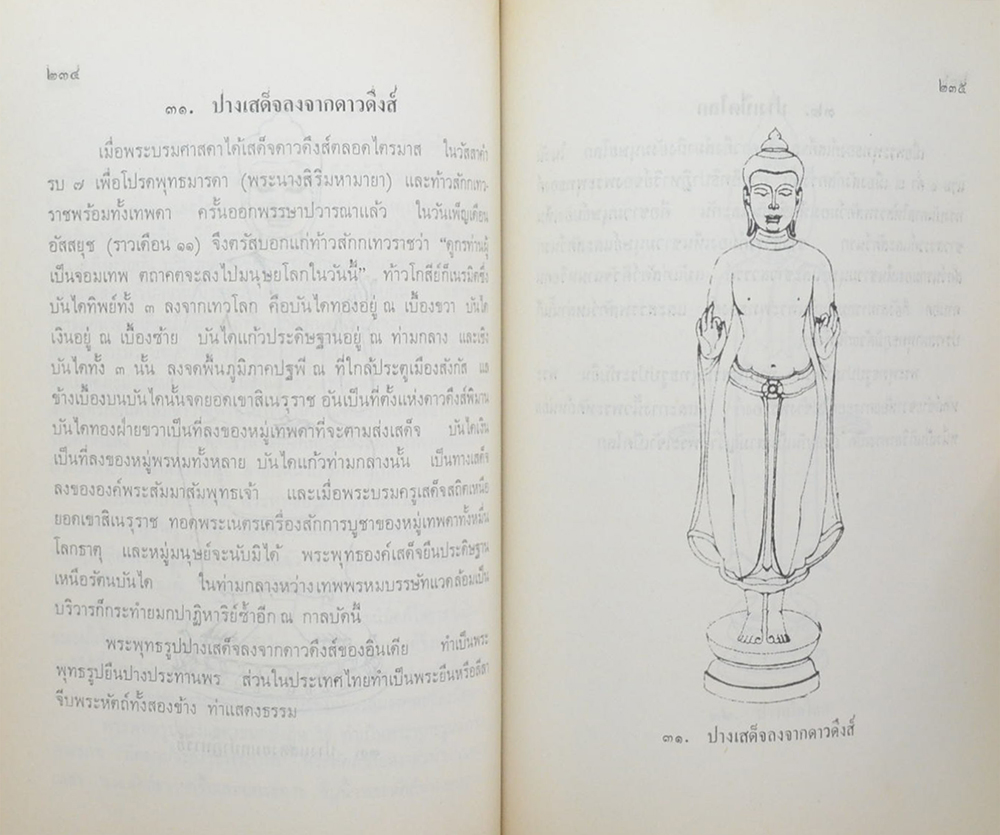 ๒๓๔
๓๑. ปางเสด็จลงจากดาวดึงส์
เมื่อพระบรมศาสดาได้เสด็จดาวดึงส์ตลอดไตรมาส ในวัสสาคำ
รบ ๗ เพื่อโปรดพุทธมารดา (พระนางสิริมหามายา) และท้าวสักกเทว-
ราชพร้อมทั้งเทพดา ครั้นออกพรรษาปวารณาแล้ว ในวันเพ็ญเดือน
อัสสยุช (ราวเดือน ๑๑) จึงตรัสบอกแก่ท้าวสักกเทวราชว่า “ดูกรท่านผู้
เป็นจอมเทพ ตถาคตจะลงไปมนุษยโลกในวันนี้” ท้าวโกสีย์ก็เนรมิตซึ่ง
บันไดทิพย์ทั้ง ๓ ลงจากเทวโลก คือบันไดทองอยู่ ณ เบื้องขวา บันได
เงินอยู่ ณ เบื้องซ้าย บันไดแก้วประดิษฐานอยู่ ณ ท่ามกลาง และเชิง
บันไดทั้ง ๓ นั้น ลงจดพื้นภูมิภาคปฐพี ณ ที่ใกล้ประตูเมืองสังกัส
ข้างเบื้องบนบันไดนั้นจดยอดเขาสิเนรุราช อันเป็นที่ตั้งแห่งดาวดึงส์พิมาน
บันไดทองฝ่ายขวาเป็นที่ลงของหมู่เทพดาที่จะตามส่งเสด็จ บันไดเงิน
เป็นที่ลงของหมู่พรหมทั้งหลาย บันไดแก้วท่ามกลางนั้น เป็นทางเสด็จ
ลงขององค์พระสัมมาสัมพุทธเจ้า และเมื่อพระบรมครูเสด็จสถิตเหนือ
ยอดเขาสิเนรุราช ทอดพระเนตรเครื่องสักการบูชาของหมู่เทพดาทั้งหมื่น
โลกธาตุ และหมู่มนุษย์จะนับมิได้ พระพุทธองค์เสด็จยืนประดิษฐาน
เหนือรัตนบันได ในท่ามกลางหว่างเทพพรหมบรรษัทแวดล้อมเป็น
บริวารก็กระทำยมกปาฏิหาริย์ซ้ำอีก ณ กาลบัดนี้
พระพุทธรูปปางเสด็จลงจากดาวดึงส์ของอินเดีย ทำเป็นพระ
พุทธรูปยืนปางประทานพร ส่วนในประเทศไทยทำเป็นพระยืนหรือลีลา
จีบพระหัตถ์ทั้งสองข้าง ท่าแสดงธรรม
๒๓๕
๓๑. ปางเสด็จลงจากดาวดึงส์